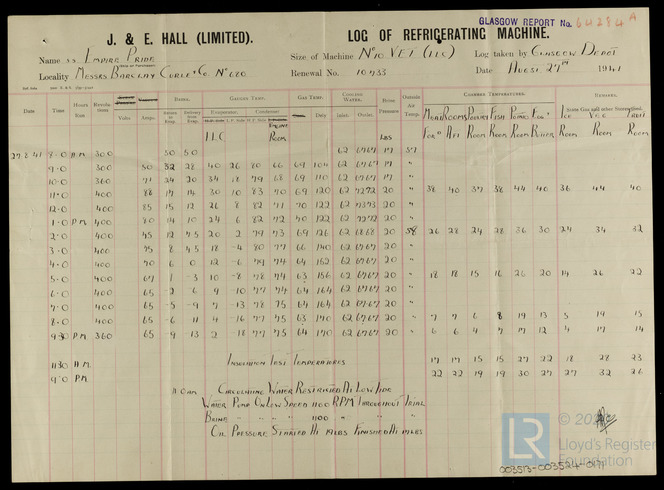 GLASGOW REPORT No. 64284 A
J. & E. HALL (LIMITED).
LOG OF REFRIGERATING MACHINE.
Name SS EMPIRE PRIDE
Size of Machine No 10 VET (IIC)
Log taken by GLASGOW DEPOT
Locality MESSRS BARCLAY CURLE & CO. No 680
Renewal No. 10933
Date AUGST 27TH 1941
Date Time Hours Revolutions Volts Amps. BRINE. GAUGES TEMP. GAS TEMP. COOLING WATER. Brine Pressure Outside Air Temp. CHAMBER TEMPERATURES. REMARKS.
Evaporator. Condenser. Inlet. Outlet.
IIC ROOM LBS FORD AFT ROOM ROOM ROOM ROOM ROOM ROOM
27.8.41 8-0 A.M. 300 50 50 62 67 67 19 57
9-0 300 50 32 28 40 26 80 66 69 104 62 67 67 19 "
10-0 360 71 24 20 34 18 79 68 69 110 62 67 67 19 "
11-0 400 88 17 14 30 10 83 70 69 120 62 72 72 20 " 38 40 37 38 44 40 36 44 40
12-0 400 85 15 12 26 8 82 71 70 122 62 73 73 20 "
1-0 P.M. 400 80 14 10 24 6 82 72 70 122 62 72 72 20 "
2-0 400 75 12 7.5 20 2 79 73 69 126 62 68 68 20 58 26 28 24 28 36 30 24 34 32
3-0 400 75 8 4.5 18 -4 80 77 66 140 62 67 67 20 "
4-0 400 70 6 0 12 -6 79 74 64 152 62 67 67 20 "
5-0 400 67 1 -3 10 -8 78 74 63 156 62 67 67 20 " 18 18 15 16 26 20 14 26 22
6-0 400 65 -2 6 9 -10 77 74 64 164 62 67 67 20 "
7-0 400 65 -5 -9 7 -13 78 75 64 164 62 67 67 20 "
8-0 400 65 -6 11 4 -16 77 75 63 170 62 67 67 20 " 7 7 6 8 19 13 5 19 15
9-30 P.M. 360 65 -9 13 2 18 77 75 64 170 62 67 67 20 " 6 6 4 7 17 12 4 17 14
INSULATION TEST TEMPERATURES
11-30 A.M. 17 17 15 15 27 22 18 28 23
9-0 P.M. 22 22 19 19 30 27 27 32 26
11-0 AM CIRCULATING WATER RESTRICTED AT LOW TIDE
WATER PUMP ON LOW SPEED 1100 R.P.M THROUGHOUT TRIAL
BRINE " " " 1100 " "
OIL PRESSURE STARTED AT 19 LBS FINISHED AT 19 LBS
LR
Lloyd's Register
Foundation
003513-003524-0171